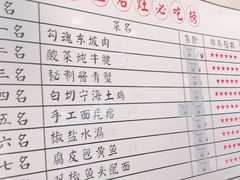 名灶必吃榜
菜名 售价 推荐指数
一名 勾魂东坡肉 ★★★★★
二名 酸菜炖牛腱 ★★★★★
三名 秘制酱青蟹 ★★★★★
四名 白切宁海土鸡 ★★★★★
五名 手工面疙瘩 ★★★★★
六名 椒盐水潺 ★★★★★
七名 腐皮包黄鱼 ★★★★★
双椒鱼头配面